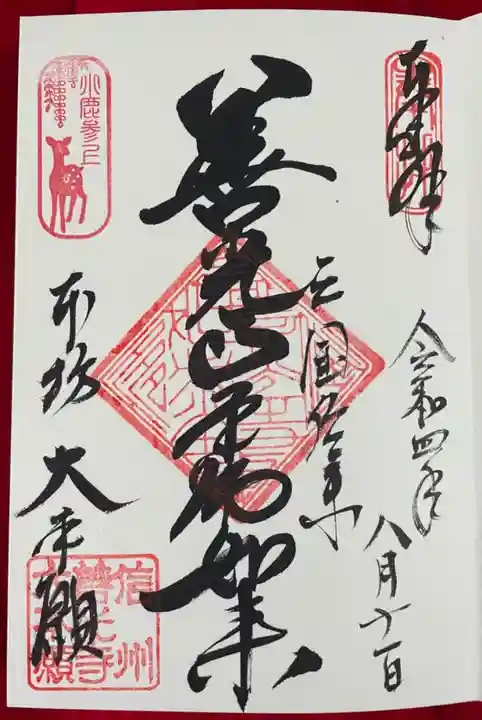 奉拝
令和四年
八月十一日
三国伝来
善光 如来
本坊 大本願
小鹿参上
信州
善光寺
大本願